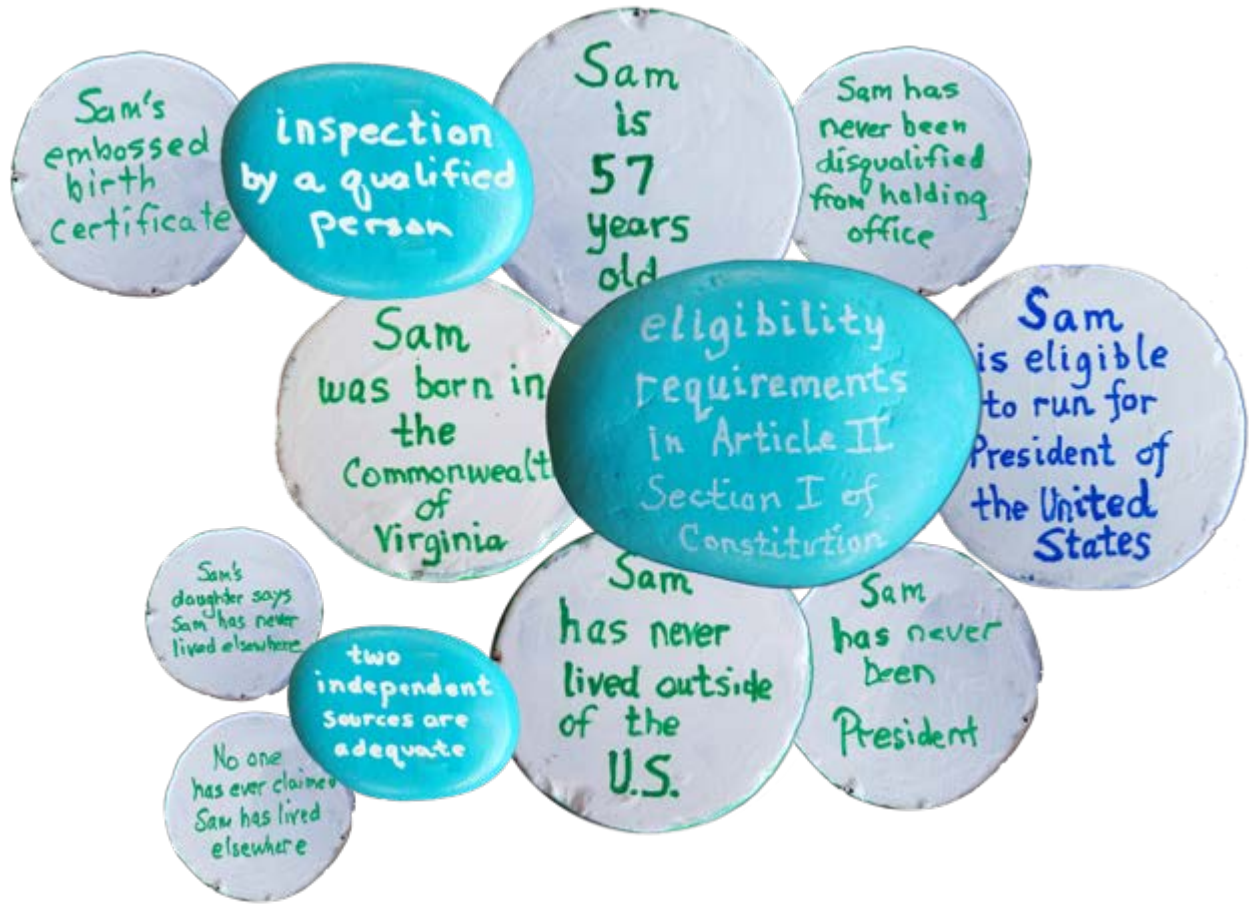 Sam's
embossed
birth
certificate
inspection
by a qualified
person
Sam
is
57
years
old
Sam has
never been
disqualified
from holding
office
Sam
was born in
the
Commonwealt
of
Virginia
eligibility
requirements
in Article II
Section I of
Constitution
Sam
is eligible
to run for
President of
the United
States
Sam's
daughter says
Sam has never
lived elsewhere
two
independent
sources are
adequate
No one
has ever claimed
Sam has lived
elsewhere
Sam
has never
lived outside
of the
U.S.
Sam
has never
been
President